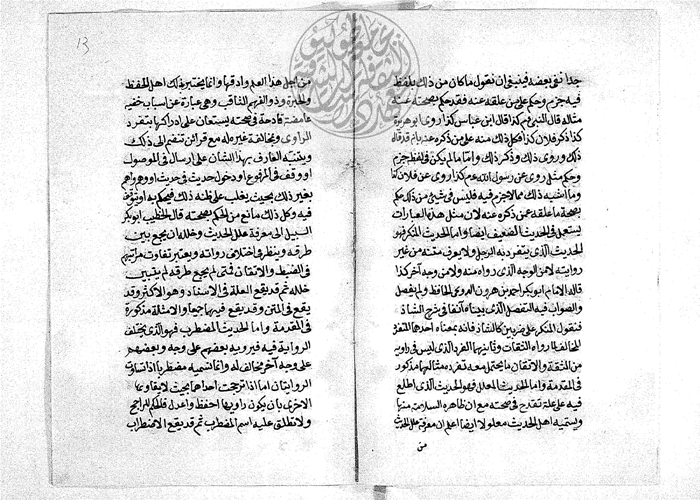 جدا نفى بعضه فينبغى ان نقول ماكان من ذلك بلفظ
فيه جزم وحكم على من علقه عنه فقد حكم بصحته عنه
مثاله قال النبى عم كذا قال ابن عباس كذا روى ابو هريرة
كذا ذكر فلان كذا فكل ذلك منه على من ذكره عنه بانه قد قاله
ذلك وروى ذلك وذكر ذلك واما مالم يكن فى لفظ جزم
وحكم مثل روى عن رسول الله عم كذا روى عن فلان كذا
وما اشبه ذلك مما لاجزم فيه فليس فى شئ من ذلك حكم
بصحة ما علقه عمن ذكره عنه لان مثل هذه العبارات
يستعمل فى الحديث الضعيف ايضا واما الحديث المنكر فهو
الحديث الذى يتفرد به الرجل ولا يعرف متنه من غير
روايته لا من الوجه الذى رواه منه ولا من وجه آخر كذا
قاله الامام ابو بكر احمد بن هرون الحافظ ولم يفصل
والصواب فيه التفصيل الذى بيناه آنفا فى شرح الشاذ
فنقول المنكر على ضربين كالشاذ فانه بمعناه احدهما المتفرد
المخالف لما رواه الثقات وثانيهما الفرد الذى ليس فى راويه
من الثقة والاتقان ما يحتمل معه تفرده مثالهما مذكور
فى المقدمة واما الحديث المعلل فهو الحديث الذى اطلع
فيه على علة تقدح فى صحته مع ان ظاهره السلامة منها
ويسميه اهل الحديث معلولا ايضا اعلم ان معرفة علل الحديث
من
13
من اجل هذا العلم وادقها وانما يختبر ذلك اهل الحفظ
والخبرة وذو الفهم الثاقب وهى عبارة عن اسباب خفية
غامضة قادحة فى صحته يستعان على ادراكها بتفرد
الراوى وبمخالفة غيره له مع قرائن تنضم الى ذلك
ويتنبه العارف بهذا الشان على ارسال فى الموصول
او وقف فى المرفوع او دخول حديث فى حديث او وهم واهم
بغير ذلك بحيث يغلب على ظنه ذلك فيحكم به او يتوقف
فيه وكل ذلك مانع من الحكم بصحته قال الخطيب ابو بكر
السبيل الى معرفة علل الحديث وخلله ان يجمع بين
طرقه وينظر فى اختلاف رواته ويعتبر تفاوت مراتبهم
فى الضبط والاتقان فمتى لم يجمع طرقه لم يتبين
خلله ثم قد يقع العلة فى الاسناد وهو الاكثر وقد
يقع فى المتن وقد يقع فيهما جميعا والامثلة مذكورة
فى المقدمة واما الحديث المضطرب فهو الذى يختلف
الرواية فيه فيرويه بعضهم على وجه وبعضهم
على وجه آخر مخالف له وانما نسميه مضطربا اذا تساوت
الروايتان اما اذا ترجحت احداهما بحيث لا يقاومها
الاخرى بان يكون راويها احفظ واعدل فالحكم للراجح
ولا نطلق عليه اسم المضطرب ثم قد يقع الاضطراب